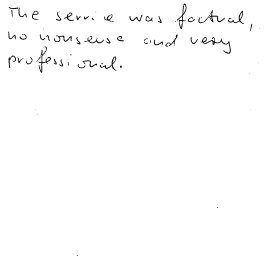 The service was factual,
no nonsense and very
professional.